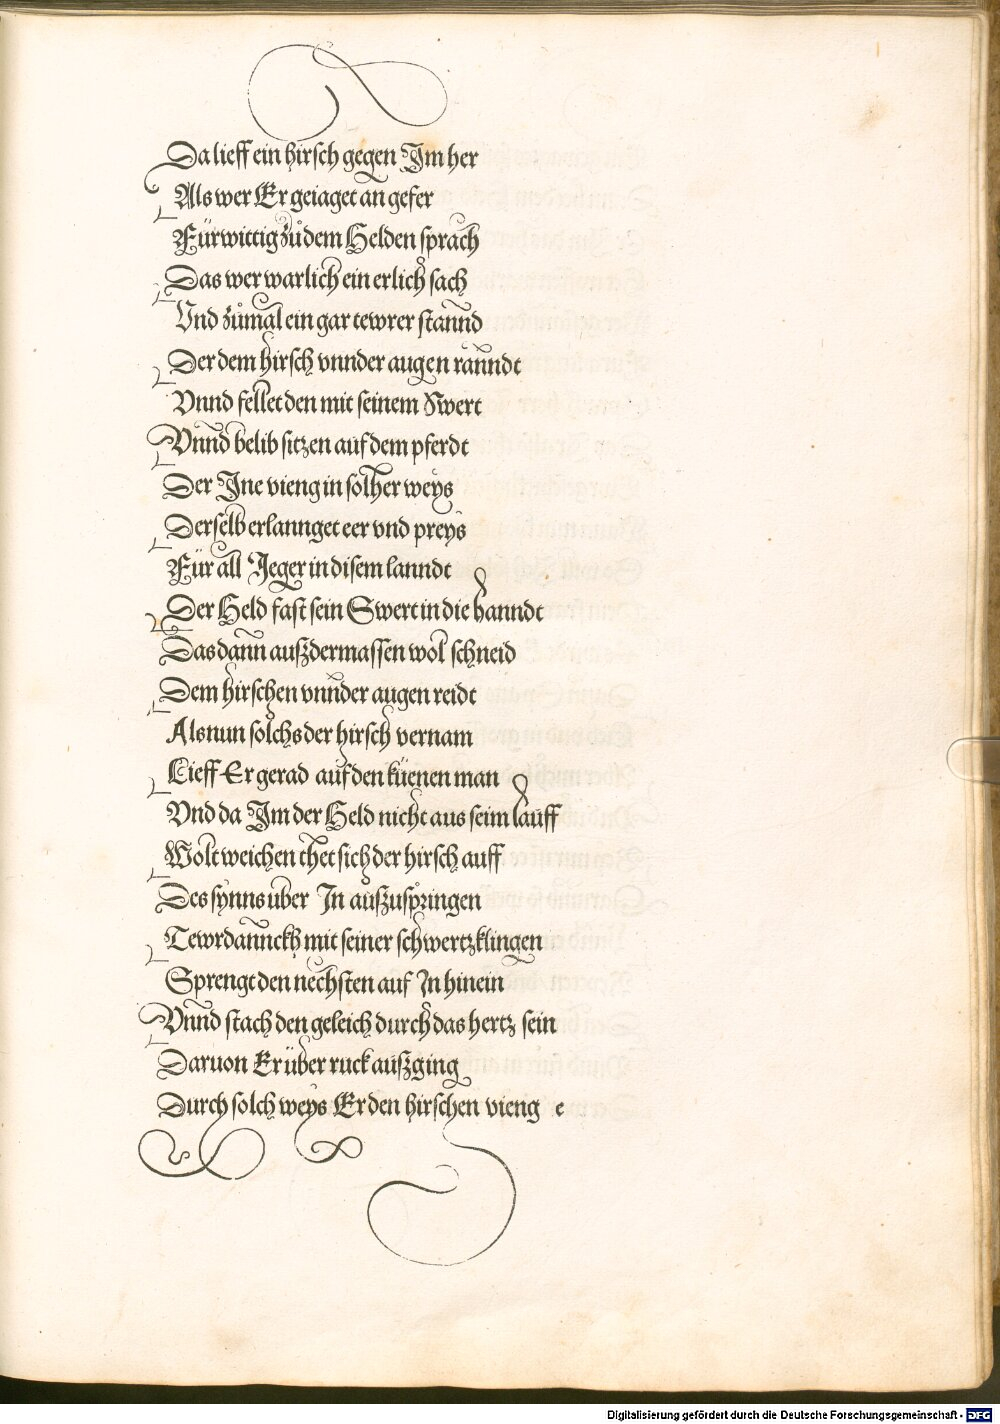 Da lieff ein hirsch gegen Im her
Als wer Er geiaget an gefer
Fürwittig zů dem Helden sprach
Das wer warlich ein erlich sach
Vnd zůmal ein gar tewrer stannd
Der dem hirsch vnnder augen ranndt
Vnnd fellet den mit seinem Swert
Vnnd belib sitzen auf dem pferdt
Der Ine vieng in solher weys
Derselb erlannget eer vnd preys
Für all Jeger in disem lanndt
Der Held fast sein Swert in die hanndt
Das dann auszdermassen wol schneid
Dem hirschen vnnder augen reidt
Als nun solchs der hirsch vernam
Lieff Er gerad auf den küenen man
Vnd da Im der Held nicht aus seim lauff
Wolt weichen thet sich der hirsch auff
Des synns über In auszuspringen
Tewrdannckh mit seiner schwertzklingen
Sprengt den nechsten auf In hinein
Vnnd stach den geleich durch das hertz sein
Daruon Er über ruck auszging
Durch solch weys Er den hirschen vieng e
Digitalisierung gefördert durch die Deutsche Forschungsgemeinschaft - DFG